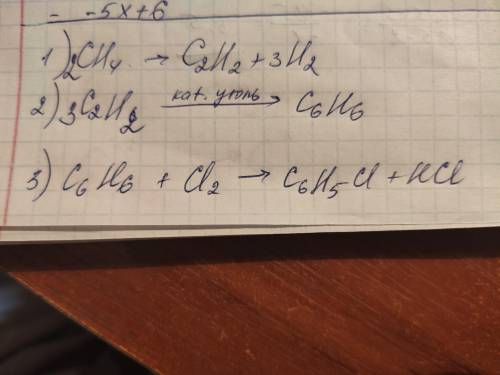 - -5x+6
1) 2CH₄ → C₂H₂ + 3H₂
2) 3C₂H₂ кат. уголь → C₆H₆
3) C₆H₆ + Cl₂ → C₆H₅-Cl + HCl